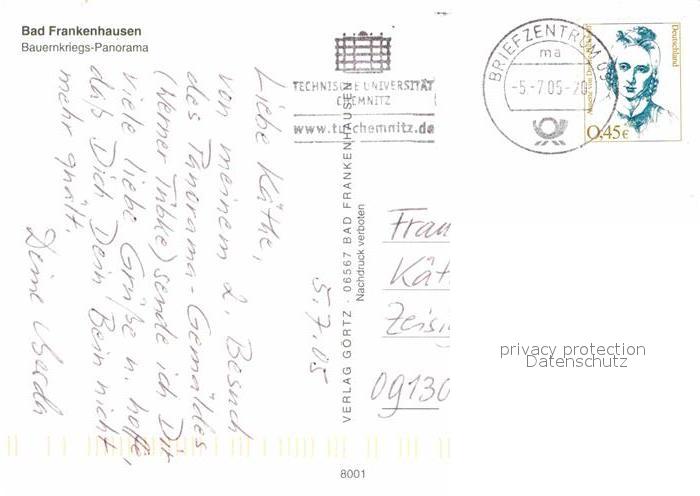 Bad Frankenhausen
Bauernkriegs-Panorama
Liebe Käthe,
von meinem 2. Besuch
des Panorama-Gemäldes
(Werner Tübke) sende ich Dir
viele liebe Grüße u. hoffe,
daß Dich Dein Bein nicht
mehr quält.
Deine
5.7.05
VERLAG GÖRTZ · 06567 BAD FRANKENHAUSEN
Nachdruck verboten
TECHNISCHE UNIVERSITÄT
CHEMNITZ
www.tu-chemnitz.de
BRIEFZENTRUM 09
ma
-5.-7.05-20
Deutschland
0,45€
Frau
Kät
Zeisi
09130
privacy protection
Datenschutz
8001